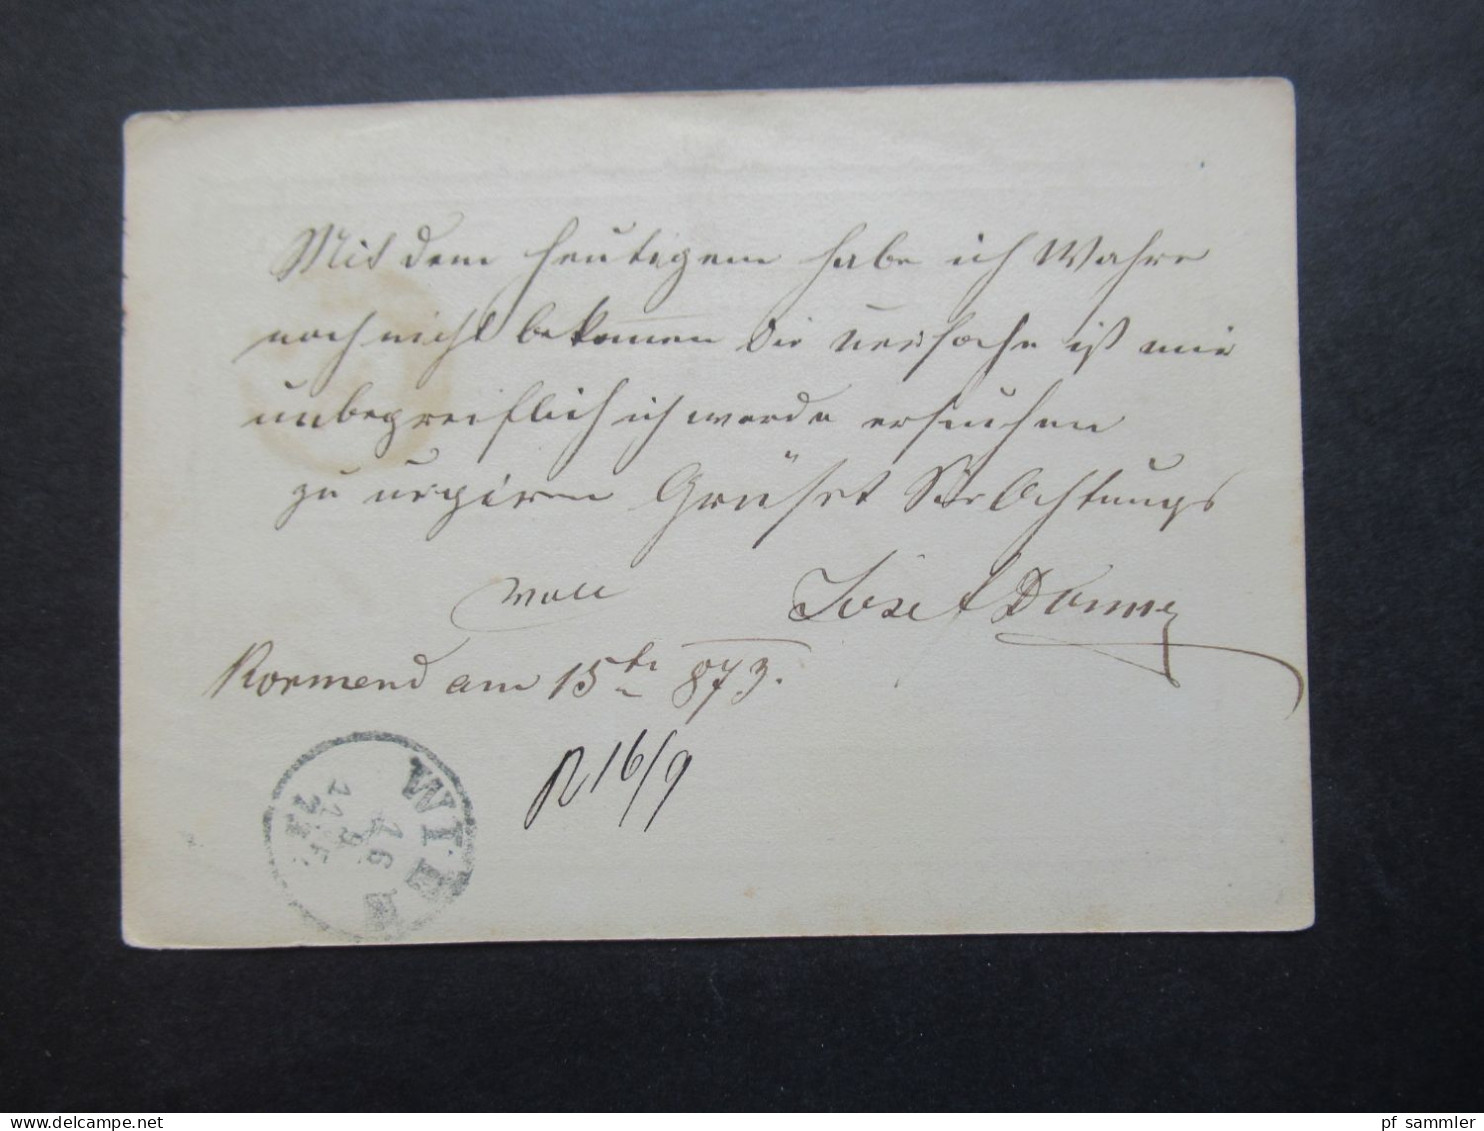 Mit dem heutigem habe ich Wahre
noch nicht bekomen die Uersache ist mir
unbegreiflich ich werde ersuchen
zu urgiren Grüset Sie Achtungs
voll Josef
Kormend am 15te 873.
R 16/9
WIEN
16
9
www.delcampe.net
pf sammler